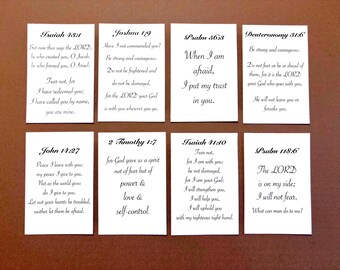 Isaiah 43:1
But now thus says the LORD,
he who created you, O Jacob,
he who formed you, O Israel:
Fear not, for
I have redeemed you;
I have called you by name,
you are mine.
Joshua 1:9
Have I not commanded you?
Be strong and courageous.
Do not be frightened and
do not be dismayed,
for the LORD your God
is with you wherever you go.
Psalm 56:3
When I am
afraid,
I put my trust
in you.
Deuteronomy 31:6
Be strong and courageous.
Do not fear or be in dread of
them, for it is the LORD
your God who goes with you.
He will not leave you or
forsake you.
John 14:27
Peace I leave with you;
my peace I give to you.
Not as the world gives
do I give to you.
Let not your hearts be troubled,
neither let them be afraid.
2 Timothy 1:7
for God gave us a spirit
not of fear but of
power &
love &
self-control.
Isaiah 41:10
Fear not,
for I am with you;
be not dismayed,
for I am your God;
I will strengthen you,
I will help you,
I will uphold you
with my righteous right hand.
Psalm 118:6
The LORD
is on my side;
I will not fear.
What can man do to me?